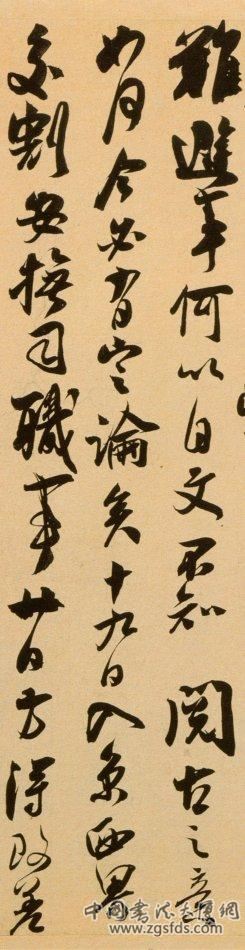 難進本何以自文不知 閱古之意
如何今必有定論矣十九日入京西界
交割安撫司職事廿日方得改差
中国书法大厦网
www.zgsfds.com